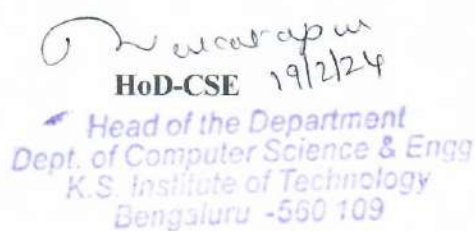 HoD-CSE 19/2/24
Head of the Department
Dept. of Computer Science & Engg
K.S. Institute of Technology
Bengaluru -560 109